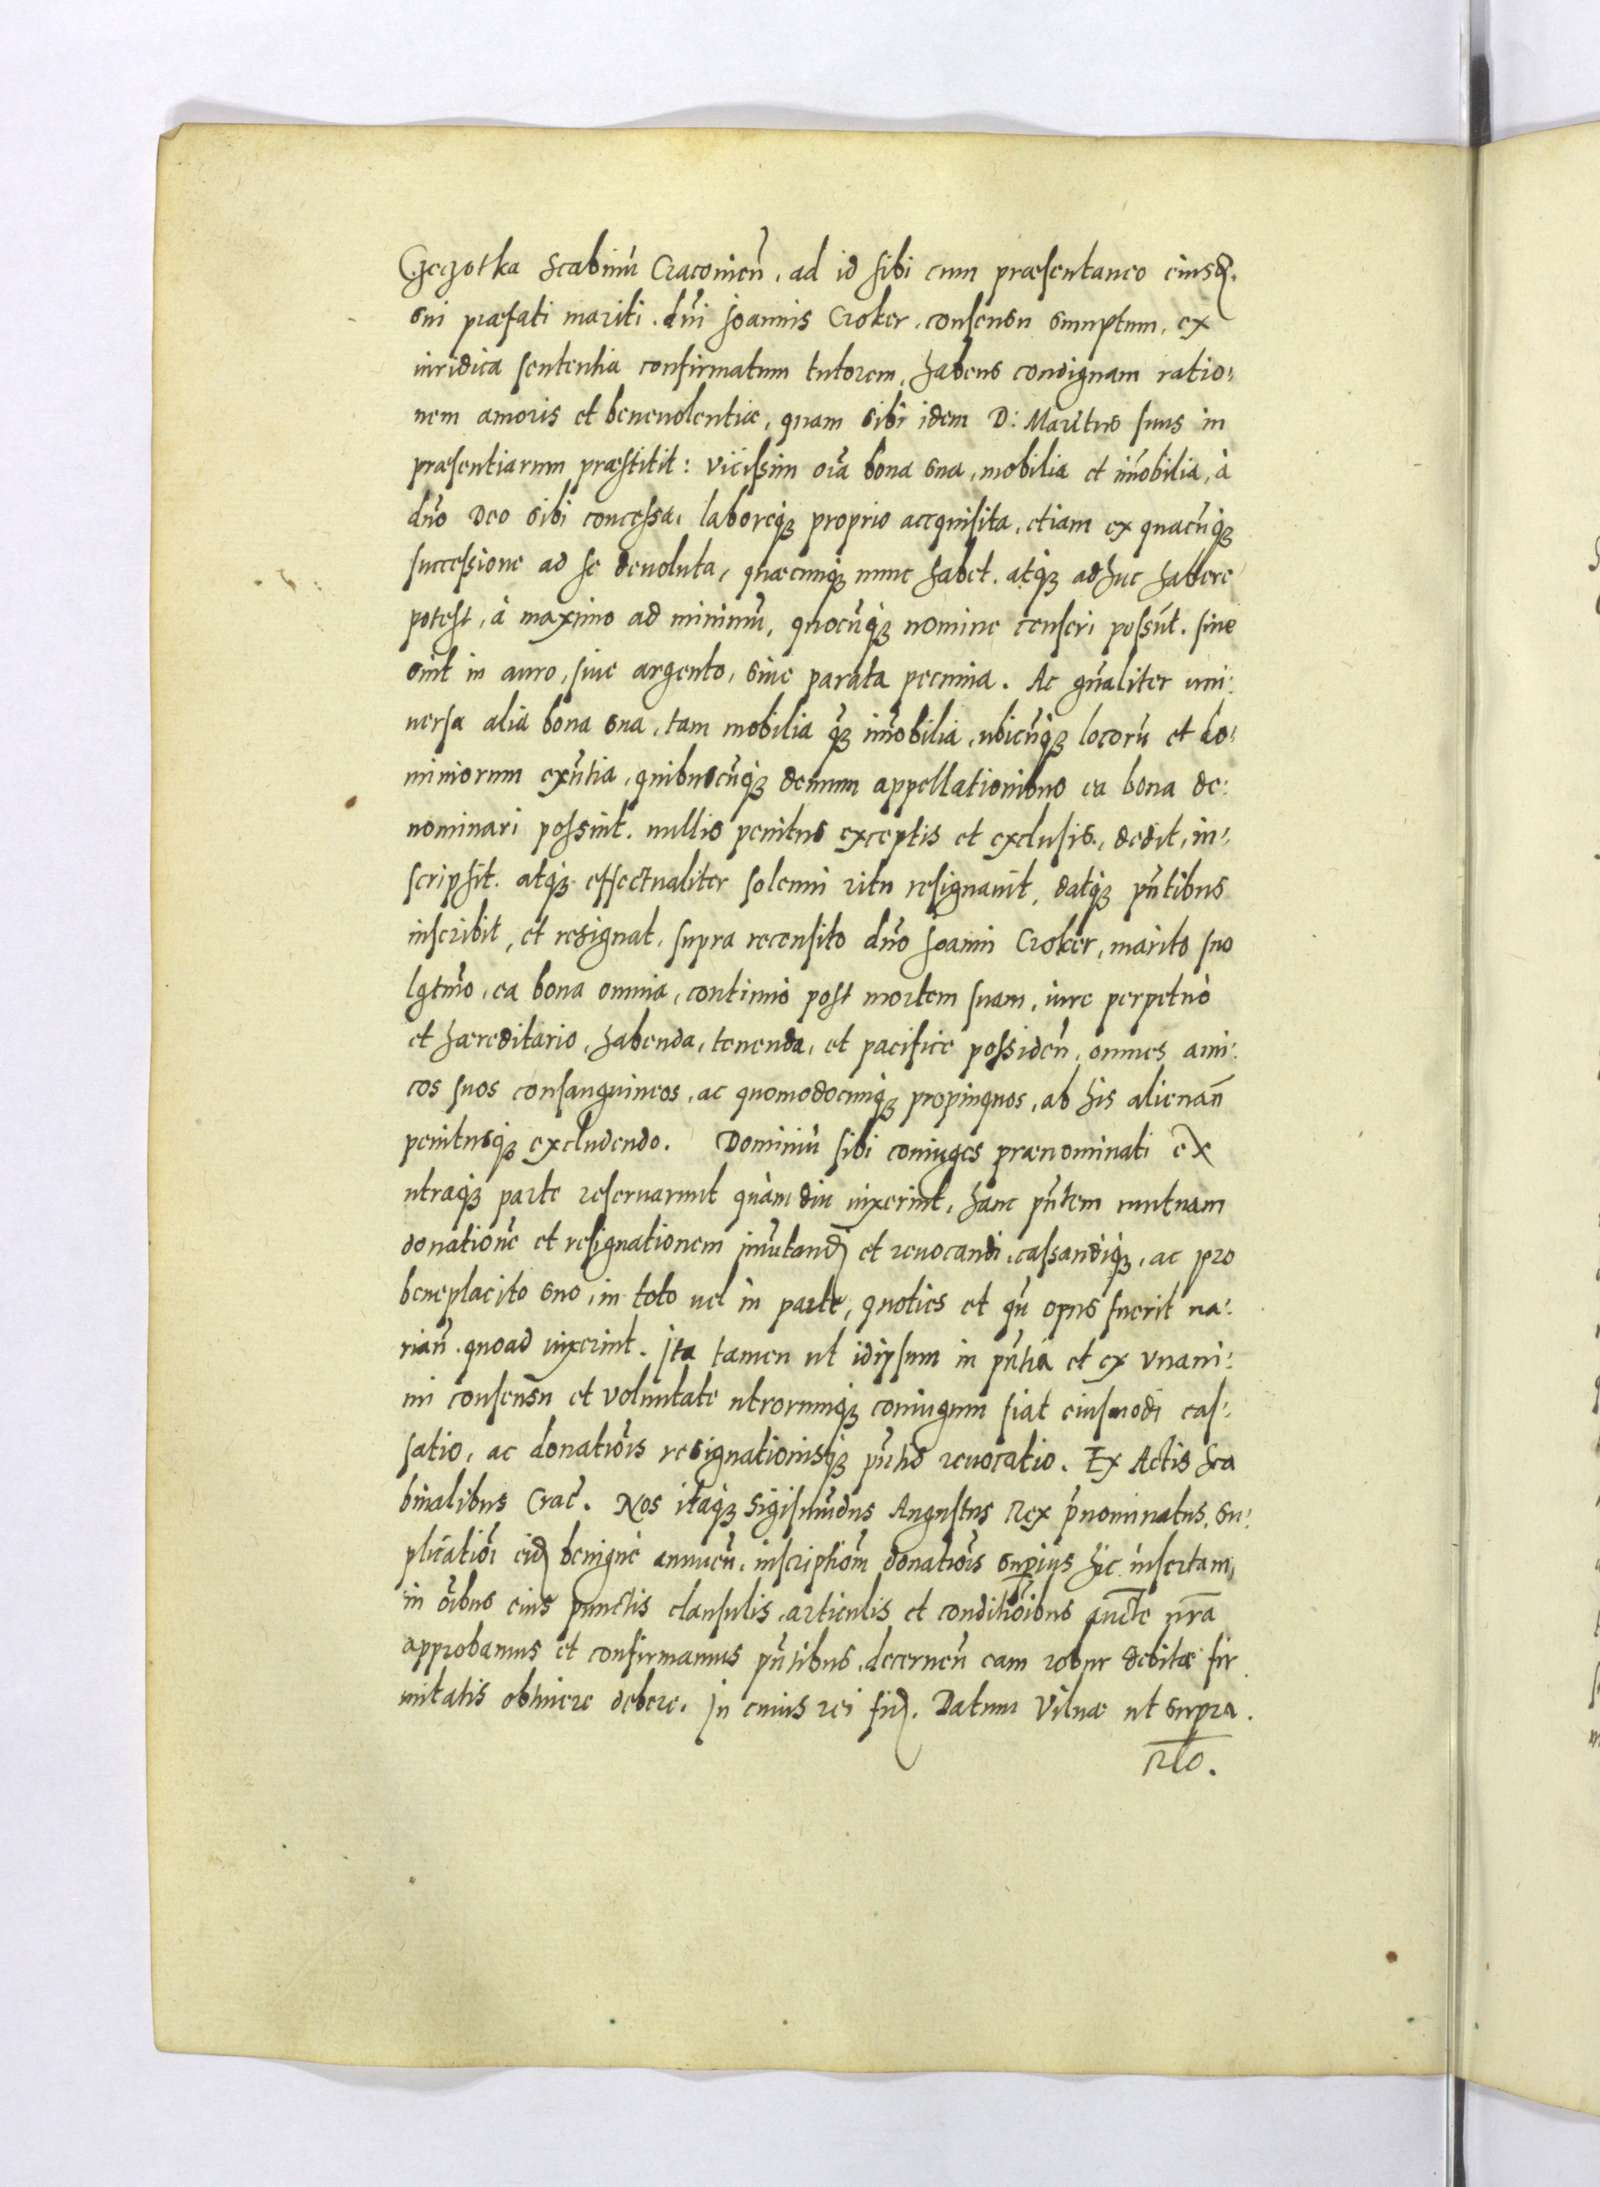 Czeczotka Scabinũ Cracouieñ. ad id sibi cum præsentaneo eiusd.
sui præfati mariti. dñi Joannis Croker. consensu sumptum, ex
iuridica sententia confirmatum tutorem, habens condignam ratio,
nem amoris et beneuolentiæ, quam sibi idem D: Maritus suus in
præsentiarum præstitit: Vicissim oĩa bona sua, mobilia et im̃obilia, à
dño Deo sibi concessa, laboreq; proprio acquisita, etiam ex quacũq;
successione ad se deuoluta, quæcunq; nunc habet. atq; adhuc habere
potest, à maximo ad minimũ, quocũq; nomine censeri possũt. siue
sint in auro, siue argento, siue parata pecunia. Ac gñaliter uni:
uersa alia bona sua, tam mobilia q̃; im̃obilia, ubicũq; locorũ et do:
miniorum exñtia, quibuscũq; demum appellationibus ea bona de:
nominari possint. nullis penitus exceptis et exclusis, dedit, in:
scripsit. atq; effectualiter solenni ritu resignauit, datq; pñtibus
inscribit, et resignat, supra recensito dño Joanni Croker, marito suo
lgtmõ, ea bona omnia, continuò post mortem suam, iure perpetuò
et hæreditario, habenda, tenenda, et pacifice possideñ, omnes ami:
cos suos consanguineos, ac quomodocunq; propinquos, ab his alienañ
penitusq; excludendo. Dominiũ sibi coniuges prænominati ex
utraq; parte reseruarunt quàm diu uixerint, hanc pñtem mutuam
donationẽ et resignationem im̃utand et reuocandi, cassandiq;, ac pro
beneplacito suo, in toto uel in parte, quoties et qñ opus fuerit ua:
riañ. quoad uixerint. Ita tamen ut idipsum in pñtia et ex unani:
mi consensu et voluntate utrorumq; coniugum fiat eiusmodi cas:
satio, ac donatiõis resignationisq; pñtis reuocatio. Ex Actis Sca
binalibus Crac̃. Nos itaq; Sigismũdus Augustus Rex p̃nominatus, su:
plicatiõi eid benignè annueñ, inscriptiõm donatiõis superius hic insertam,
in õibus eius punctis clausulis, articulis et conditiõibus aucte nr̃a
approbamus et confirmamus pñtibus, decerneñ eam robur debitæ fir
mitatis obtinere debere. In cuius rei fid. Datum Vilnæ ut supra.